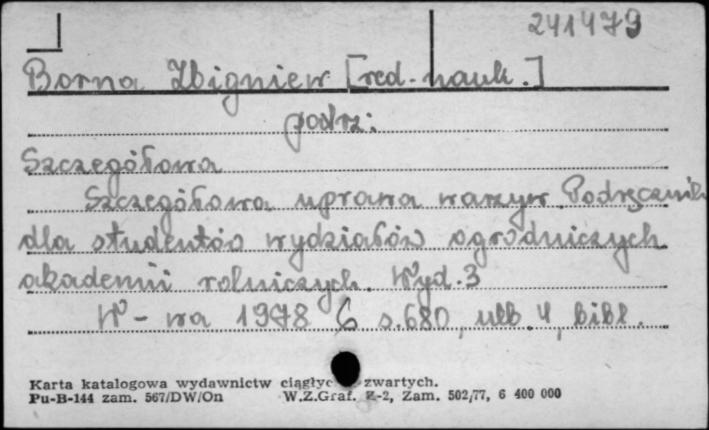 241479
Borna Zbigniew [red. nauk.]
podrz:
Szczegółowa
Szczegółowa uprawa warzyw. Podręcznik
dla studentów wydziałów ogrodniczych
akademii rolniczych. Wyd. 3
W-wa 1978 s. 680, ulb. 4, bibl.
Karta katalogowa wydawnictw zwartych.
Pu-B-144 zam. 567/DW/On W.Z.Graf. Z-2, Zam. 502/77, 6 400 000